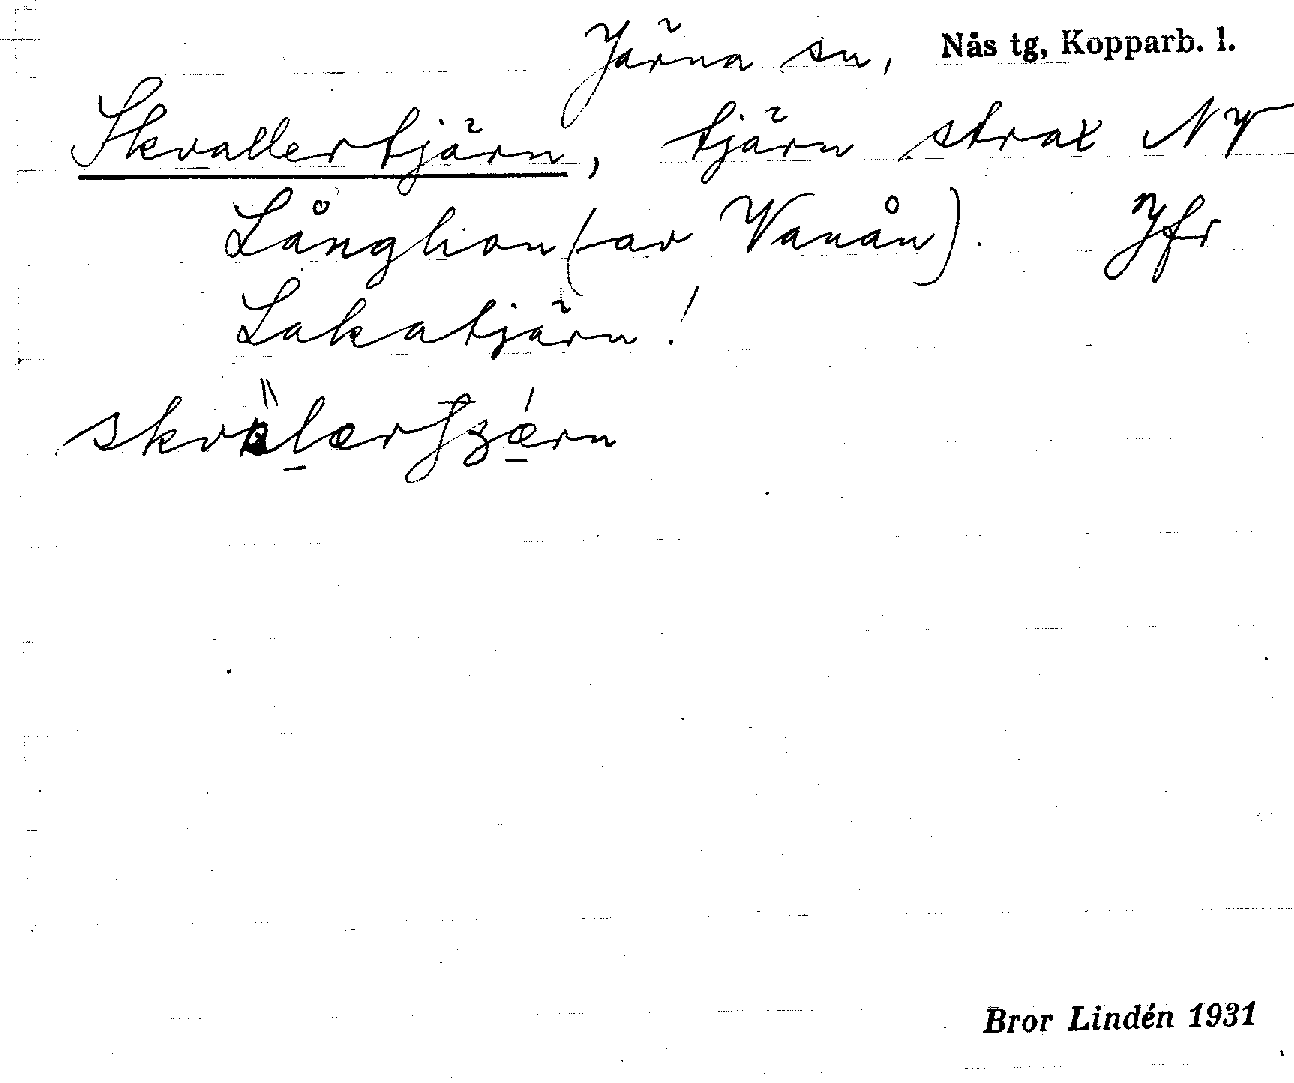 Järna sn, Nås tg, Kopparb. l.
Skvallertjärn, tjärn strax NV
Långhon (av Vanån). Jfr
Lakatjärn!
Bror Lindén 1931